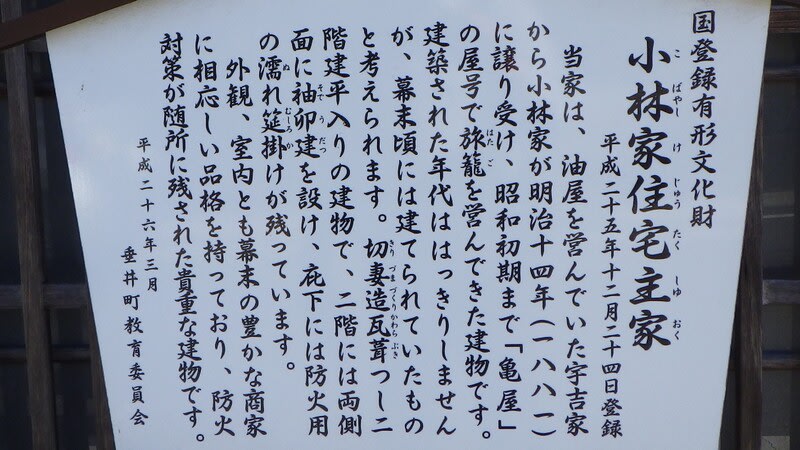 国登録有形文化財
小林家住宅主家
こばやしけじゅうたくしゅおく
平成二十五年十二月二十四日登録
当家は、油屋を営んでいた宇吉家
から小林家が明治十四年（一八八一）
に譲り受け、昭和初期まで「亀屋」
の屋号で旅籠を営んできた建物です。
はたご
建築された年代ははっきりしません
が、幕末頃には建てられていたもの
と考えられます。切妻造瓦葺つし二
きりづまづくりかわらぶき
階建平入りの建物で、二階には両側
面に袖卯建を設け、庇下には防火用
そでうだつ
の濡れ筵掛けが残っています。
ぬむしろか
外観、室内とも幕末の豊かな商家
に相応しい品格を持っており、防火
対策が随所に残された貴重な建物です。
平成二十六年三月
垂井町教育委員会